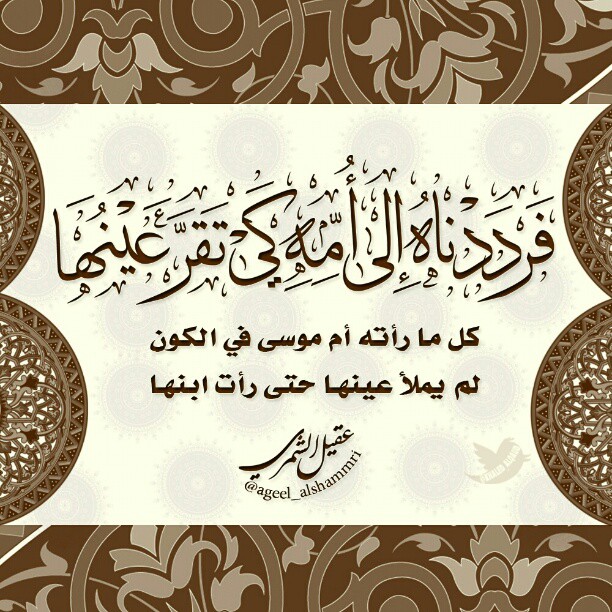 فَرَدَدْنَاهُ إِلَى أُمِّهِ كَيْ تَقَرَّ عَيْنُهَا
كل ما رأته أم موسى في الكون
لم يملأ عينها حتى رأت ابنها
عقيل الشمري
@ageel_alshammri